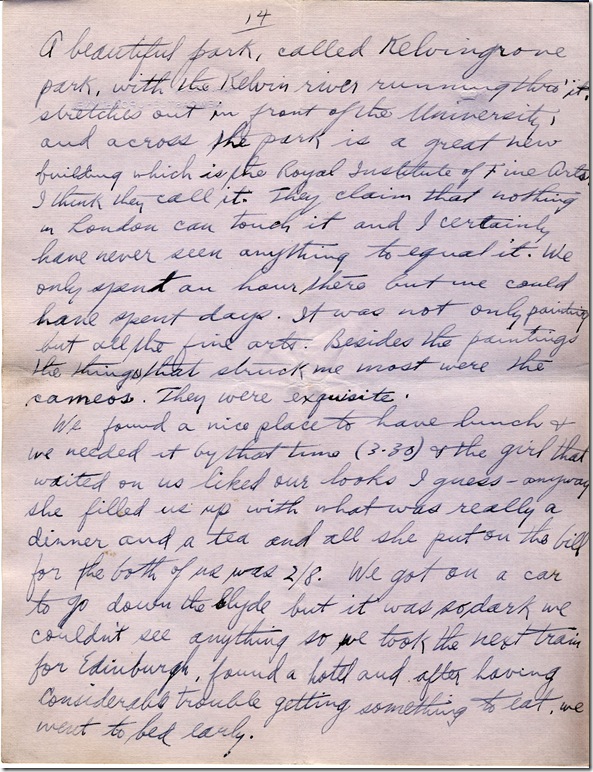 14
A beautiful park, called Kelvingrove
park, with the Kelvin river running thro' it,
stretches out in front of the University,
and across the park is a great new
building which is the Royal Institute of Fine Arts
I think they call it. They claim that nothing
in London can touch it and I certainly
have never seen anything to equal it. We
only spent an hour there but we could
have spent days. It was not only painting
but all the fine arts. Besides the paintings
the things that struck me most were the
cameos. They were exquisite.
We found a nice place to have lunch &
we needed it by that time (3:30) & the girl that
waited on us liked our looks I guess - anyway
she filled us up with what was really a
dinner and a tea and all she put on the bill
for the both of us was 2/8. We got on a car
to go down the Clyde but it was so dark we
couldn't see anything so we took the next train
for Edinburgh, found a hotel and after having
considerable trouble getting something to eat, we
went to bed early.